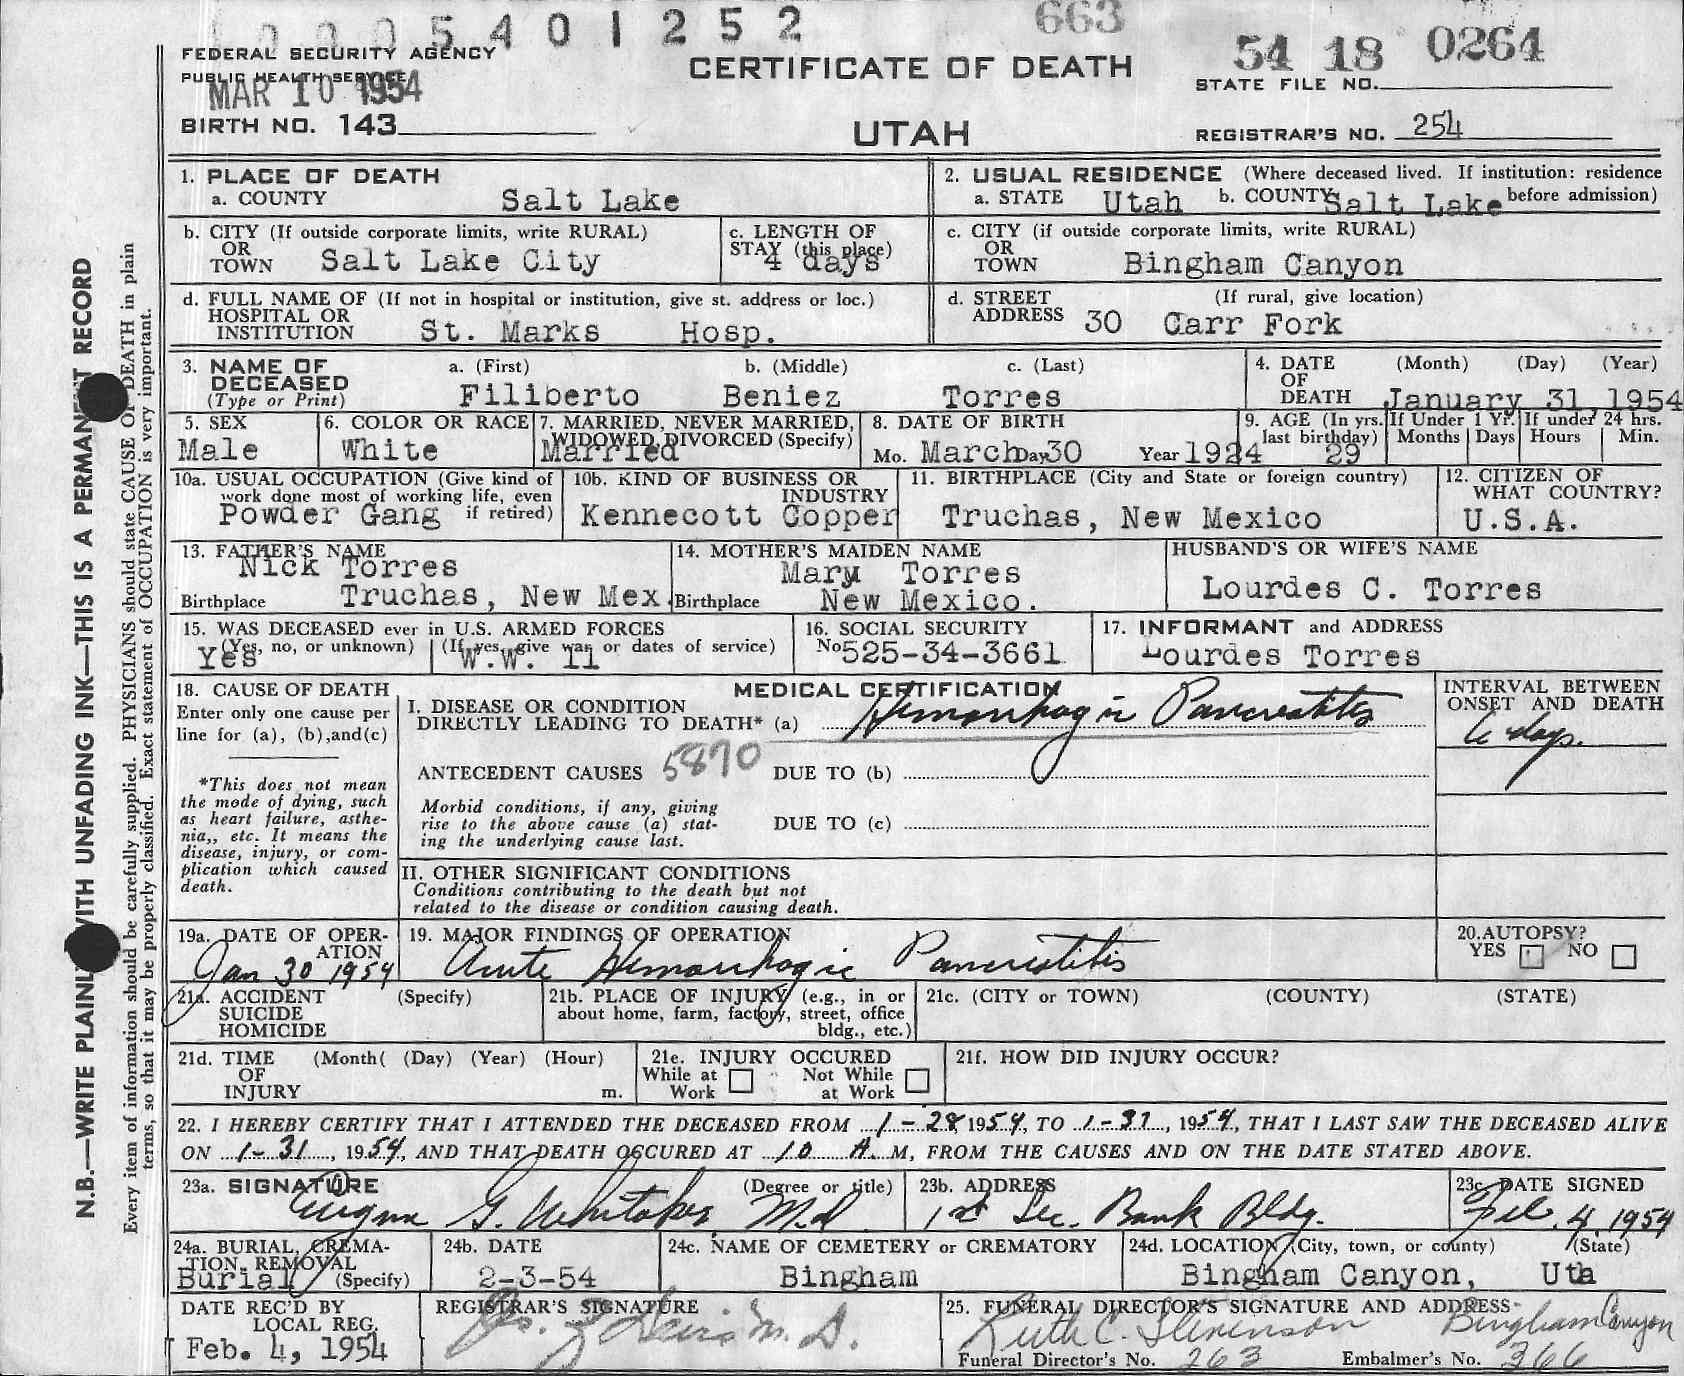 10005401252 663
FEDERAL SECURITY AGENCY
PUBLIC HEALTH SERVICE
MAR 10 1954
CERTIFICATE OF DEATH
54 18 0264
STATE FILE NO.
BIRTH NO. 143
UTAH
REGISTRAR'S NO. 254
1. PLACE OF DEATH
a. COUNTY Salt Lake
2. USUAL RESIDENCE (Where deceased lived. If institution: residence before admission)
a. STATE Utah b. COUNTY Salt Lake
b. CITY (If outside corporate limits, write RURAL)
OR
TOWN Salt Lake City
c. LENGTH OF
STAY (this place)
4 days
c. CITY (if outside corporate limits, write RURAL)
OR
TOWN Bingham Canyon
d. FULL NAME OF (If not in hospital or institution, give st. address or loc.)
HOSPITAL OR
INSTITUTION St. Marks Hosp.
d. STREET (If rural, give location)
ADDRESS 30 Carr Fork
3. NAME OF DECEASED
(Type or Print)
a. (First) b. (Middle) c. (Last)
Filiberto Beniez Torres
4. DATE OF DEATH (Month) (Day) (Year)
January 31, 1954
5. SEX
Male
6. COLOR OR RACE
White
7. MARRIED, NEVER MARRIED,
WIDOWED, DIVORCED (Specify)
Married
8. DATE OF BIRTH
Mo. March Day 30 Year 1924
9. AGE (In yrs. last birthday)
29
If Under 1 Yr. Months Days
If under 24 hrs. Hours Min.
10a. USUAL OCCUPATION (Give kind of
work done most of working life, even
if retired)
Powder Gang
10b. KIND OF BUSINESS OR
INDUSTRY
Kennecott Copper
11. BIRTHPLACE (City and State or foreign country)
Truchas, New Mexico
12. CITIZEN OF
WHAT COUNTRY?
U.S.A.
13. FATHER'S NAME
Nick Torres
Birthplace Truchas, New Mex.
14. MOTHER'S MAIDEN NAME
Mary Torres
Birthplace New Mexico.
HUSBAND'S OR WIFE'S NAME
Lourdes C. Torres
15. WAS DECEASED ever in U.S. ARMED FORCES
(Yes, no, or unknown) (If yes, give war or dates of service)
Yes W.W. 11
16. SOCIAL SECURITY
No 525-34-3661
17. INFORMANT and ADDRESS
Lourdes Torres
18. CAUSE OF DEATH
Enter only one cause per
line for (a), (b), and (c)
*This does not mean
the mode of dying, such
as heart failure, asthe-
nia,, etc. It means the
disease, injury, or com-
plication which caused
death.
MEDICAL CERTIFICATION
I. DISEASE OR CONDITION
DIRECTLY LEADING TO DEATH* (a) Hemorrhagic Pancreatitis
INTERVAL BETWEEN
ONSET AND DEATH
6 days.
ANTECEDENT CAUSES 5870 DUE TO (b)
Morbid conditions, if any, giving
rise to the above cause (a) stat-
ing the underlying cause last.
DUE TO (c)
II. OTHER SIGNIFICANT CONDITIONS
Conditions contributing to the death but not
related to the disease or condition causing death.
19a. DATE OF OPER-
ATION
Jan 30 1954
19. MAJOR FINDINGS OF OPERATION
Acute Hemorrhagic Pancreatitis
20. AUTOPSY?
YES NO
21a. ACCIDENT (Specify)
SUICIDE
HOMICIDE
21b. PLACE OF INJURY (e.g., in or
about home, farm, factory, street, office
bldg., etc.)
21c. (CITY or TOWN) (COUNTY) (STATE)
21d. TIME (Month( (Day) (Year) (Hour)
OF
INJURY m.
21e. INJURY OCCURED
While at Work Not While at Work
21f. HOW DID INJURY OCCUR?
22. I HEREBY CERTIFY THAT I ATTENDED THE DECEASED FROM 1-28, 1954, TO 1-31, 1954, THAT I LAST SAW THE DECEASED ALIVE
ON 1-31, 1954, AND THAT DEATH OCCURED AT 10 A. M, FROM THE CAUSES AND ON THE DATE STATED ABOVE.
23a. SIGNATURE (Degree or title)
Eugene G. Whitaker M.d
23b. ADDRESS
1st Sec. Bank Bldg.
23c. DATE SIGNED
Feb. 4 1954
24a. BURIAL, CREMA-
TION, REMOVAL
Burial (Specify)
24b. DATE
2-3-54
24c. NAME OF CEMETERY or CREMATORY
Bingham
24d. LOCATION (City, town, or county) (State)
Bingham Canyon, Uta
DATE REC'D BY
LOCAL REG.
Feb. 4, 1954
REGISTRAR'S SIGNATURE
M. D.
25. FUNERAL DIRECTOR'S SIGNATURE AND ADDRESS
Ruth C. Stevenson Bingham Canyon
Funeral Director's No. 263 Embalmer's No. 366
N.B.—WRITE PLAINLY WITH UNFADING INK—THIS IS A PERMANENT RECORD
Every item of information should be carefully supplied. PHYSICIANS should state CAUSE OF DEATH in plain
terms, so that it may be properly classified. Exact statement of OCCUPATION is very important.